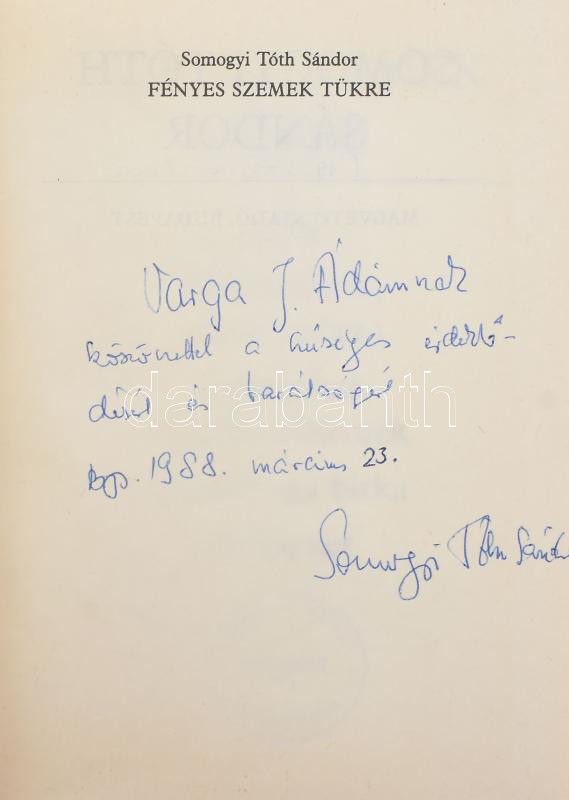 Somogyi Tóth Sándor
FÉNYES SZEMEK TÜKRE
Varga J. Ádámnak
köszönettel a hűséges érdeklő-
désért és barátságért
darabanth
Bp. 1988. március 23.
Somogyi Tóth Sándor